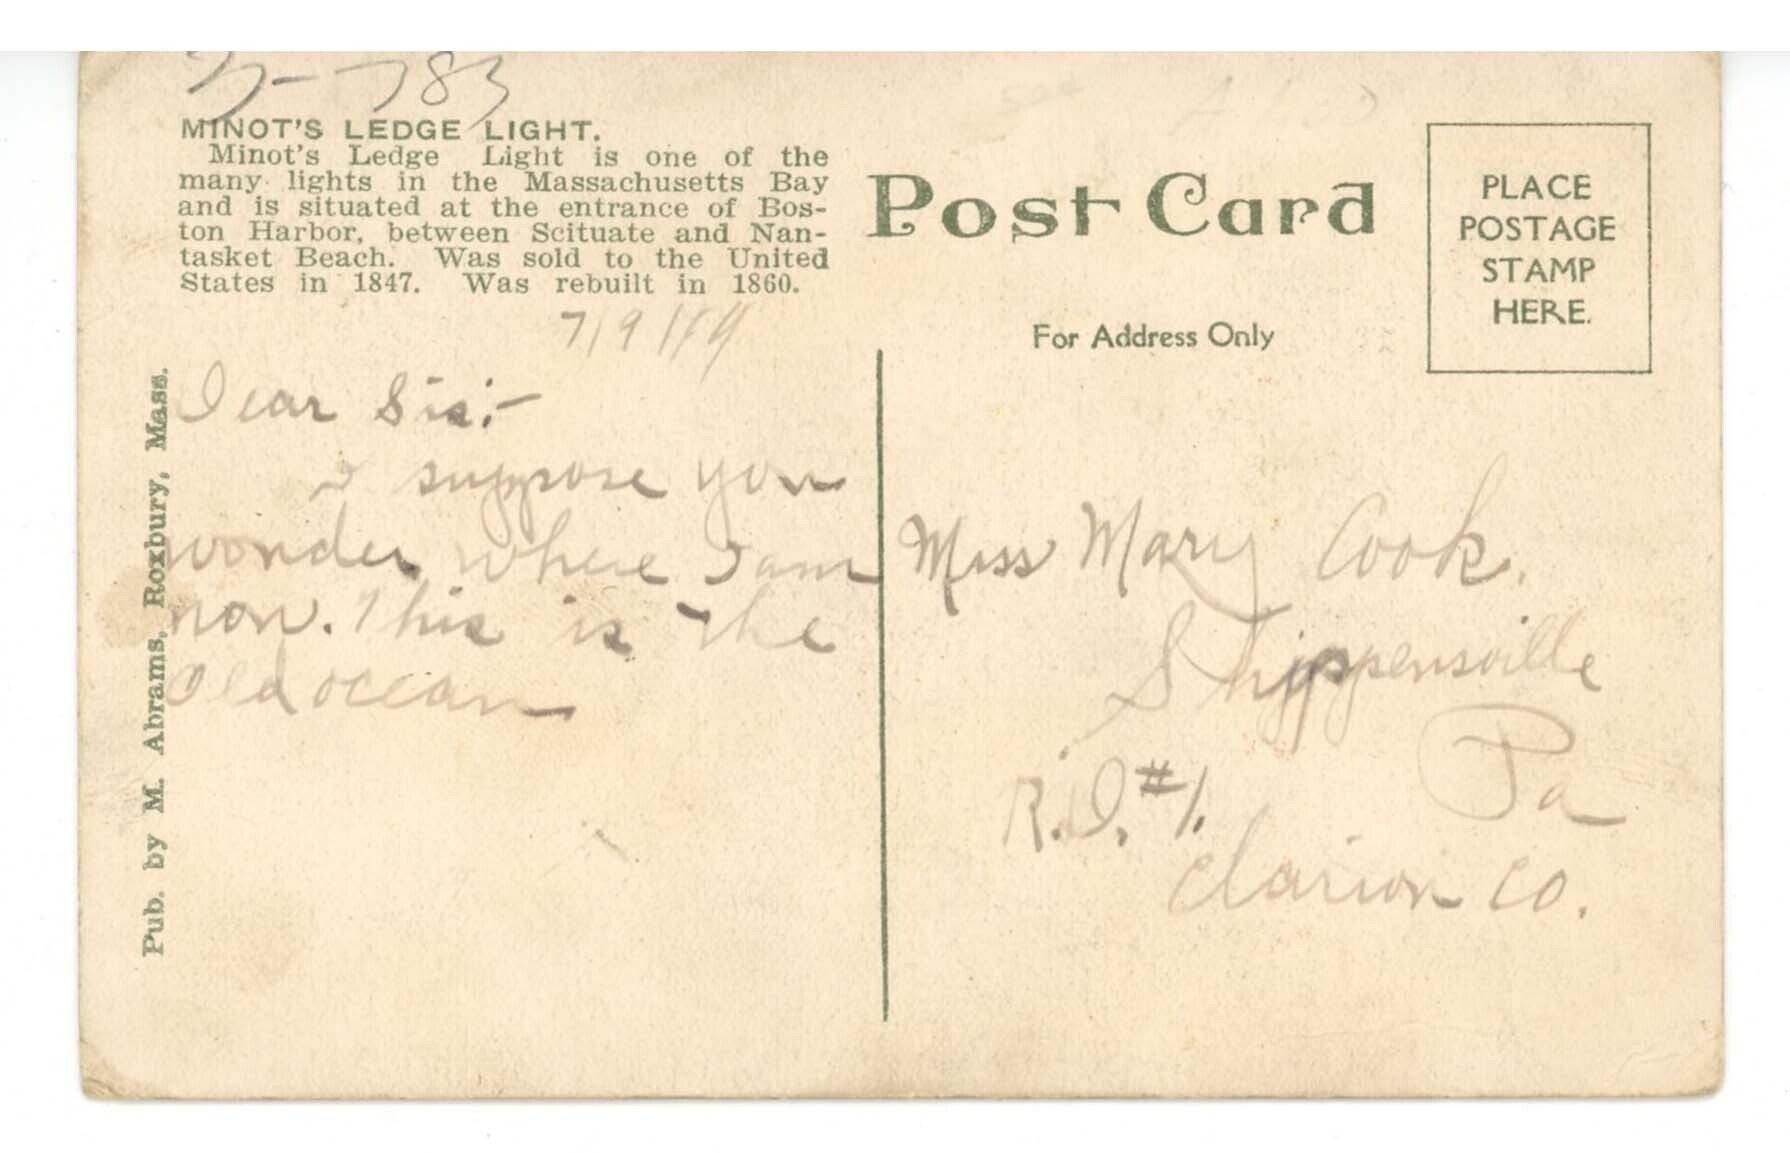 783
MINOT'S LEDGE LIGHT.
Minot's Ledge Light is one of the
many lights in the Massachusetts Bay
and is situated at the entrance of Bos-
ton Harbor, between Scituate and Nan-
tasket Beach. Was sold to the United
States in 1847. Was rebuilt in 1860.
Pub. by M. Abrams, Roxbury, Mass.
Dear Sis:-
I suppose you
wonder where I am
now. This is the
Old ocean
Post Card
For Address Only
PLACE
POSTAGE
STAMP
HERE.
Miss Mary Cook.
Shippensville
Pa
R.D. #1.
Clarion Co.